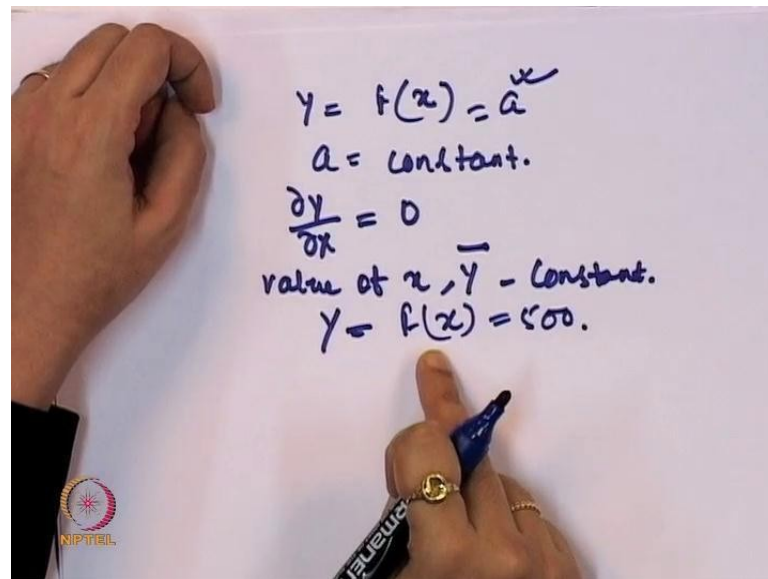 Y = f(x) = a
a = constant.
∂y/∂x = 0
value of x, Y - constant.
Y = f(x) = 500.
Permanent
NPTEL